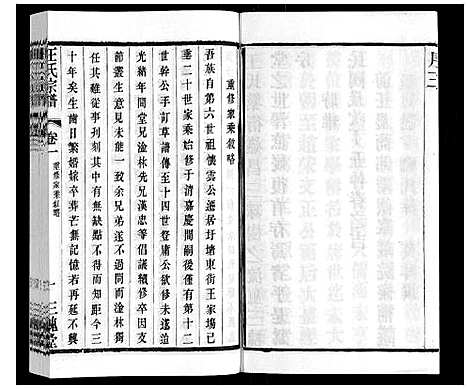 序三
重修家乘敘略
吾族自第六世祖懷雲公遷居圩塘東街王家場已
二十世家乘始修于清嘉慶間嗣後僅有第十二
世幹公手訂草譜傳至十四世肅庸公欲修未遂迨
光緒年間堂兄淦林先兄漢忠等倡議續修卒因支
節叢生意見未能一致余兄弟遂不過問而淦林獨
任其難從事刊刻其中有無缺點不得而知但今三
十年矣生齒日繁婚嫁卒葬茫無記憶若再延不興
王氏宗譜
卷一
重修家乘敘略
一
三槐堂